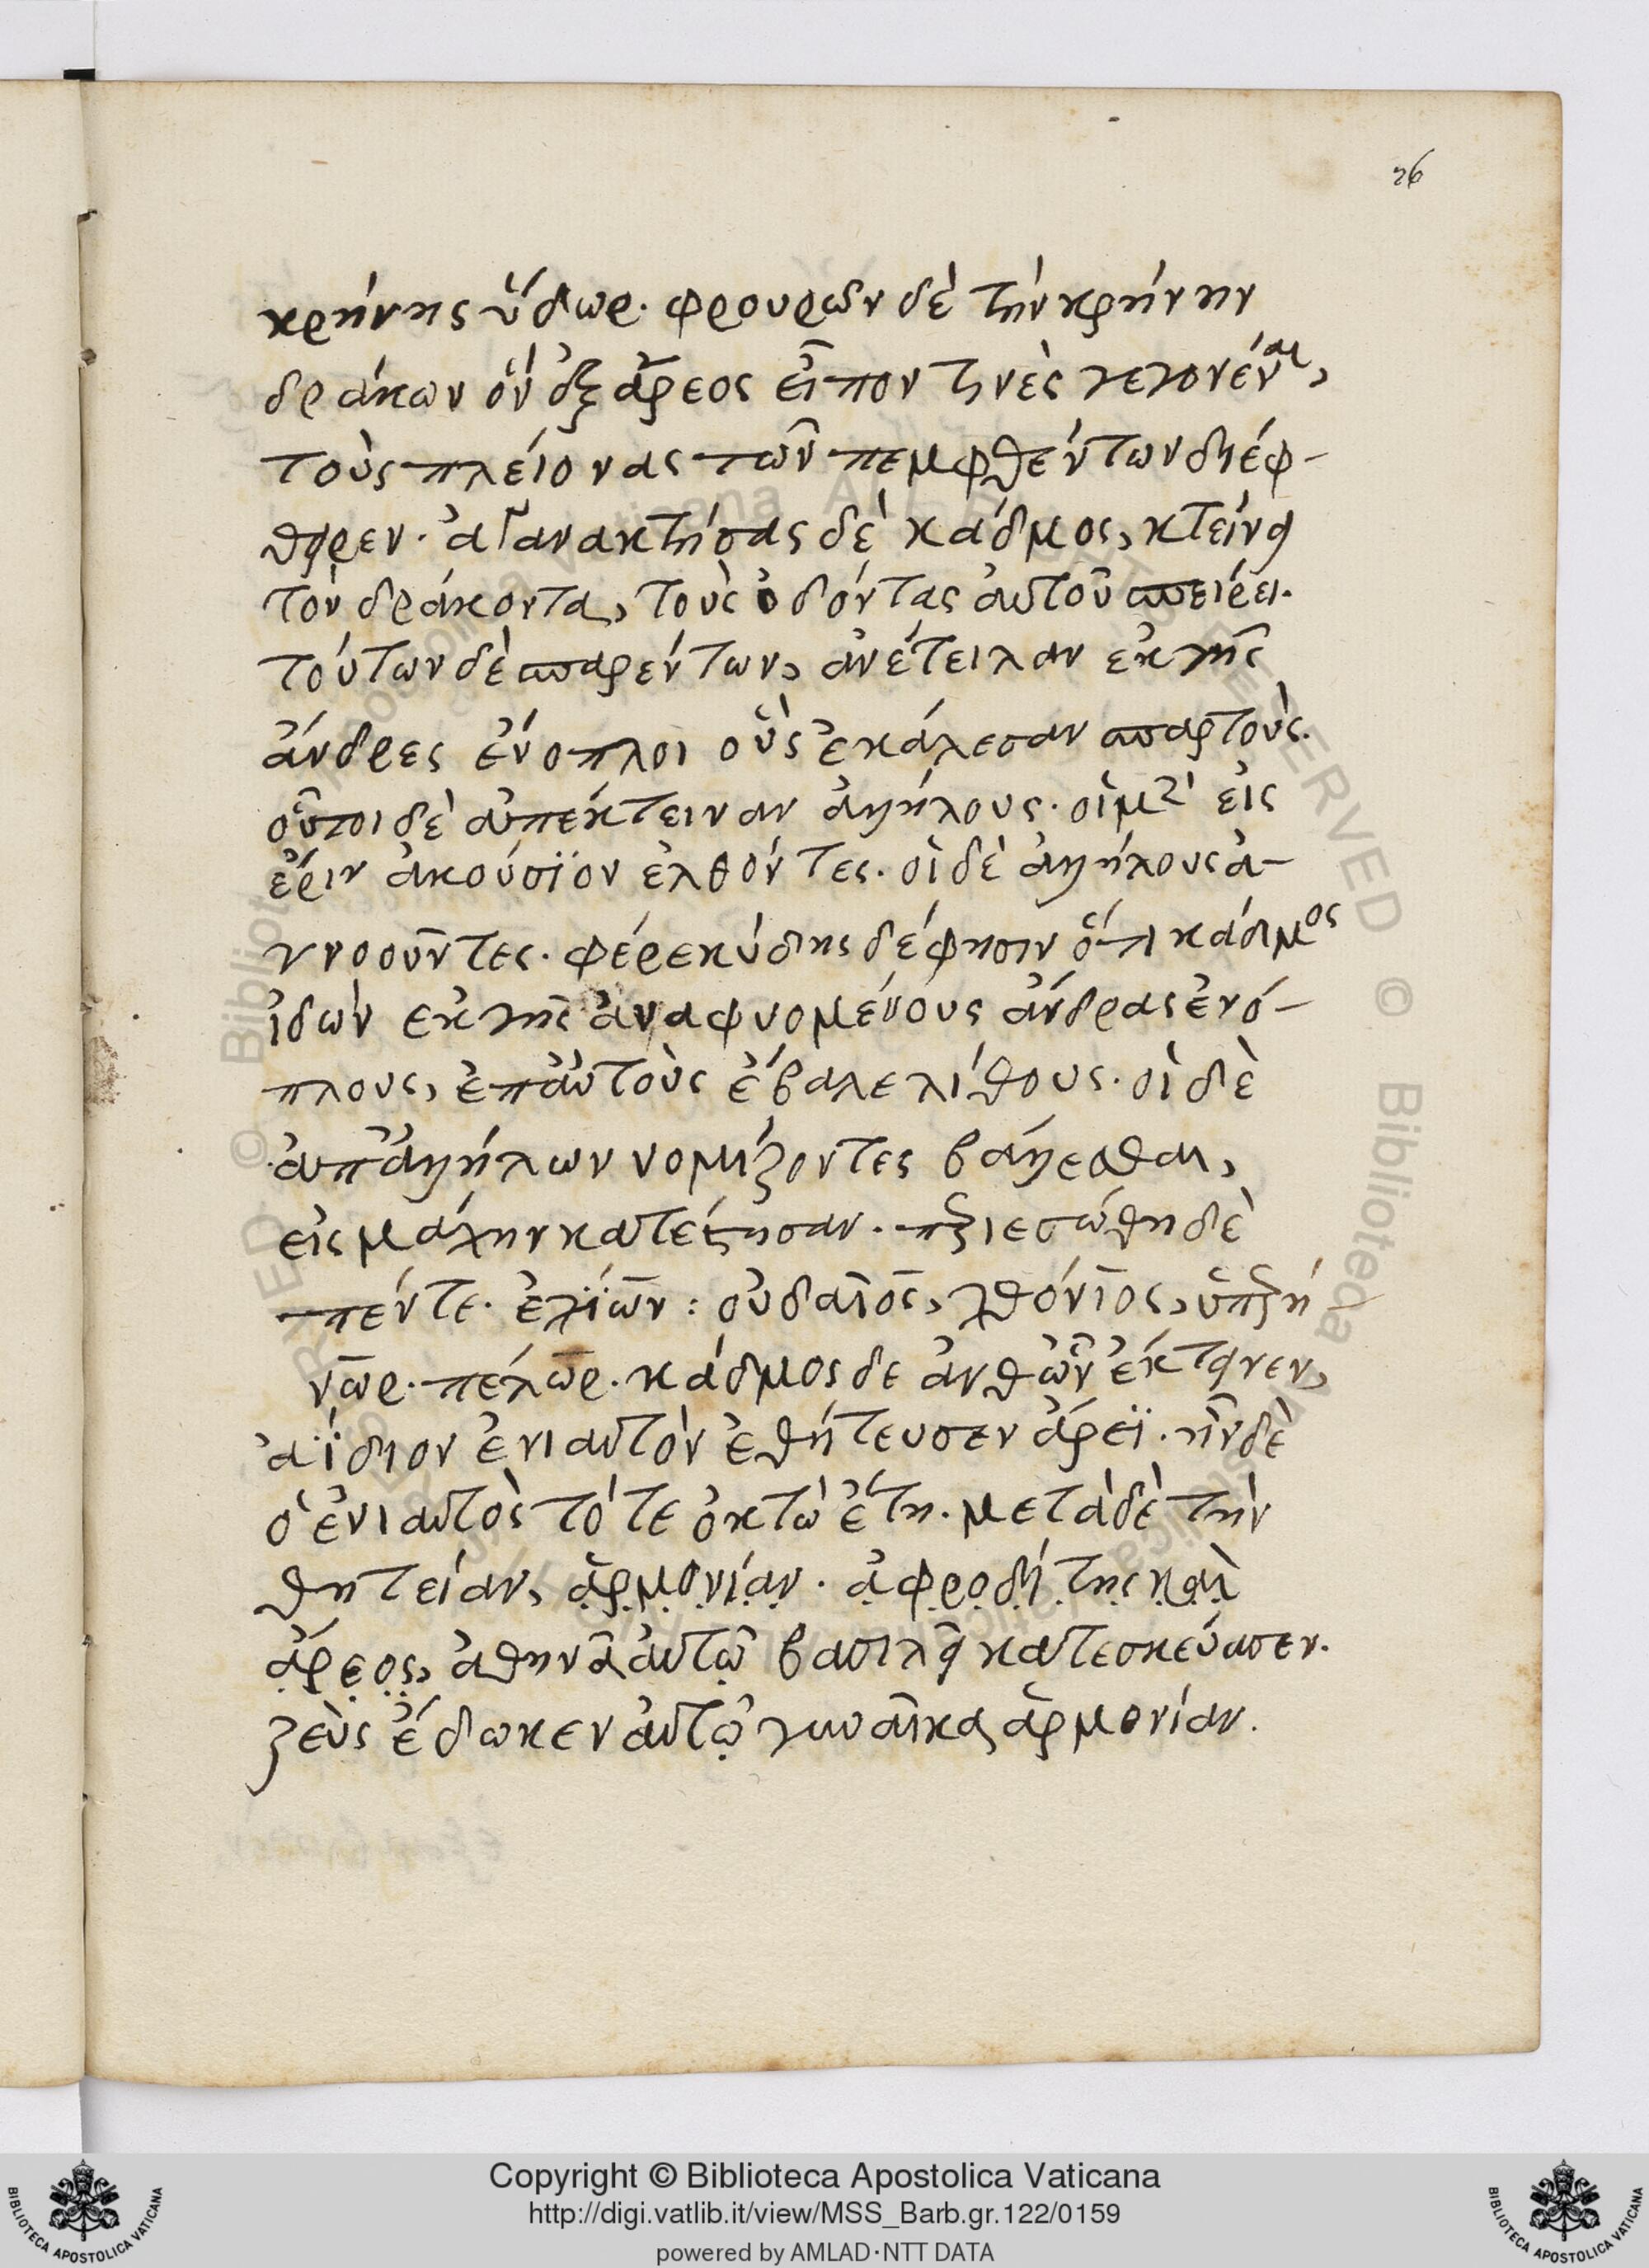 76
κρήνης ὕδωρ. φρουρῶν δὲ τὴν κρήνην
δράκων ὃν ἐξ ἄρεος εἶπον τινὲς γεγονέναι,
τοὺς πλείονας τῶν πεμφθέντων διέφ-
θειρεν. ἀγανακτήσας δὲ κάδμος, κτείνει
τὸν δράκοντα, τοὺς ὀδόντας αὐτοῦ σπείρει.
τούτων δὲ σπαρέντων, ἀνέτειλαν ἐκ γῆς
ἄνδρες ἔνοπλοι οὓς ἐκάλεσαν σπαρτοὺς.
οὗτοι δὲ ἀπέκτειναν ἀλλήλους. οἱ μὲν εἰς
ἔριν ἀκούσϊον ἐλθόντες. οἱ δὲ ἀλλήλους ἀ-
γνοοῦντες. φερεκύδης δέ φησιν ὅτι κάδμος
ἰδὼν ἐκ γῆς ἀναφυομένους ἄνδρας ἐνό-
πλους, ἐπ' αὐτοὺς ἔβαλε λίθους. οἱ δὲ
ὑπ' ἀλλήλων νομίζοντες βάλλεσθαι,
εἰς μάχην κατέστησαν. περιεσώθη δὲ
πέντε. ἐχϊών: οὐδαῖος, χθόνιος, ὑπερή-
νωρ. πέλωρ. κάδμος δε ἀνθ' ὧν ἔκτεινεν,
ἀΐδιον ἐνιαυτὸν ἐθήτευσεν ἄρεϊ. ἦν δὲ
ὁ ἐνιαυτὸς τότε ὀκτὼ ἔτη. μετὰ δὲ τὴν
θητείαν, ἁρμονίαν. ἀφροδίτης καὶ
ἄρεος, ἀθηνᾶ αὐτῷ βασιλεί κατεσκεύασεν.
ζεὺς ἔδωκεν αὐτῷ γυναῖκα ἁρμονίαν.
Copyright © Biblioteca Apostolica Vaticana
http://digi.vatlib.it/view/MSS_Barb.gr.122/0159
powered by AMLAD·NTT DATA